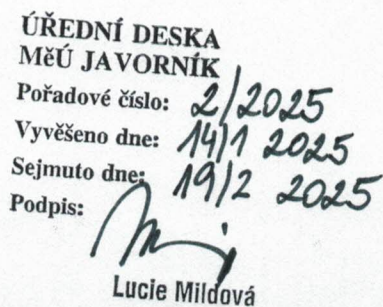 ÚŘEDNÍ DESKA
MěÚ JAVORNÍK
Pořadové číslo: 2/2025
Vyvěšeno dne: 14/1 2025
Sejmuto dne: 19/2 2025
Podpis:
Lucie Mildová